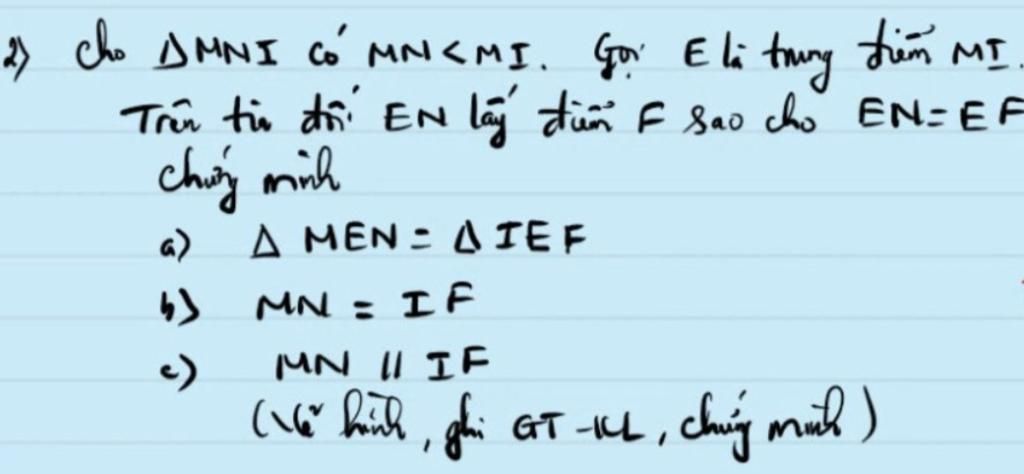 2) Cho ΔMNI có MN < MI. Gọi E là trung điểm MI.
Trên tia đối EN lấy điểm F sao cho EN = EF
chứng minh
a) Δ MEN = Δ IEF
b) MN = IF
c) MN // IF
(Vẽ hình, ghi GT-KL, chứng minh)